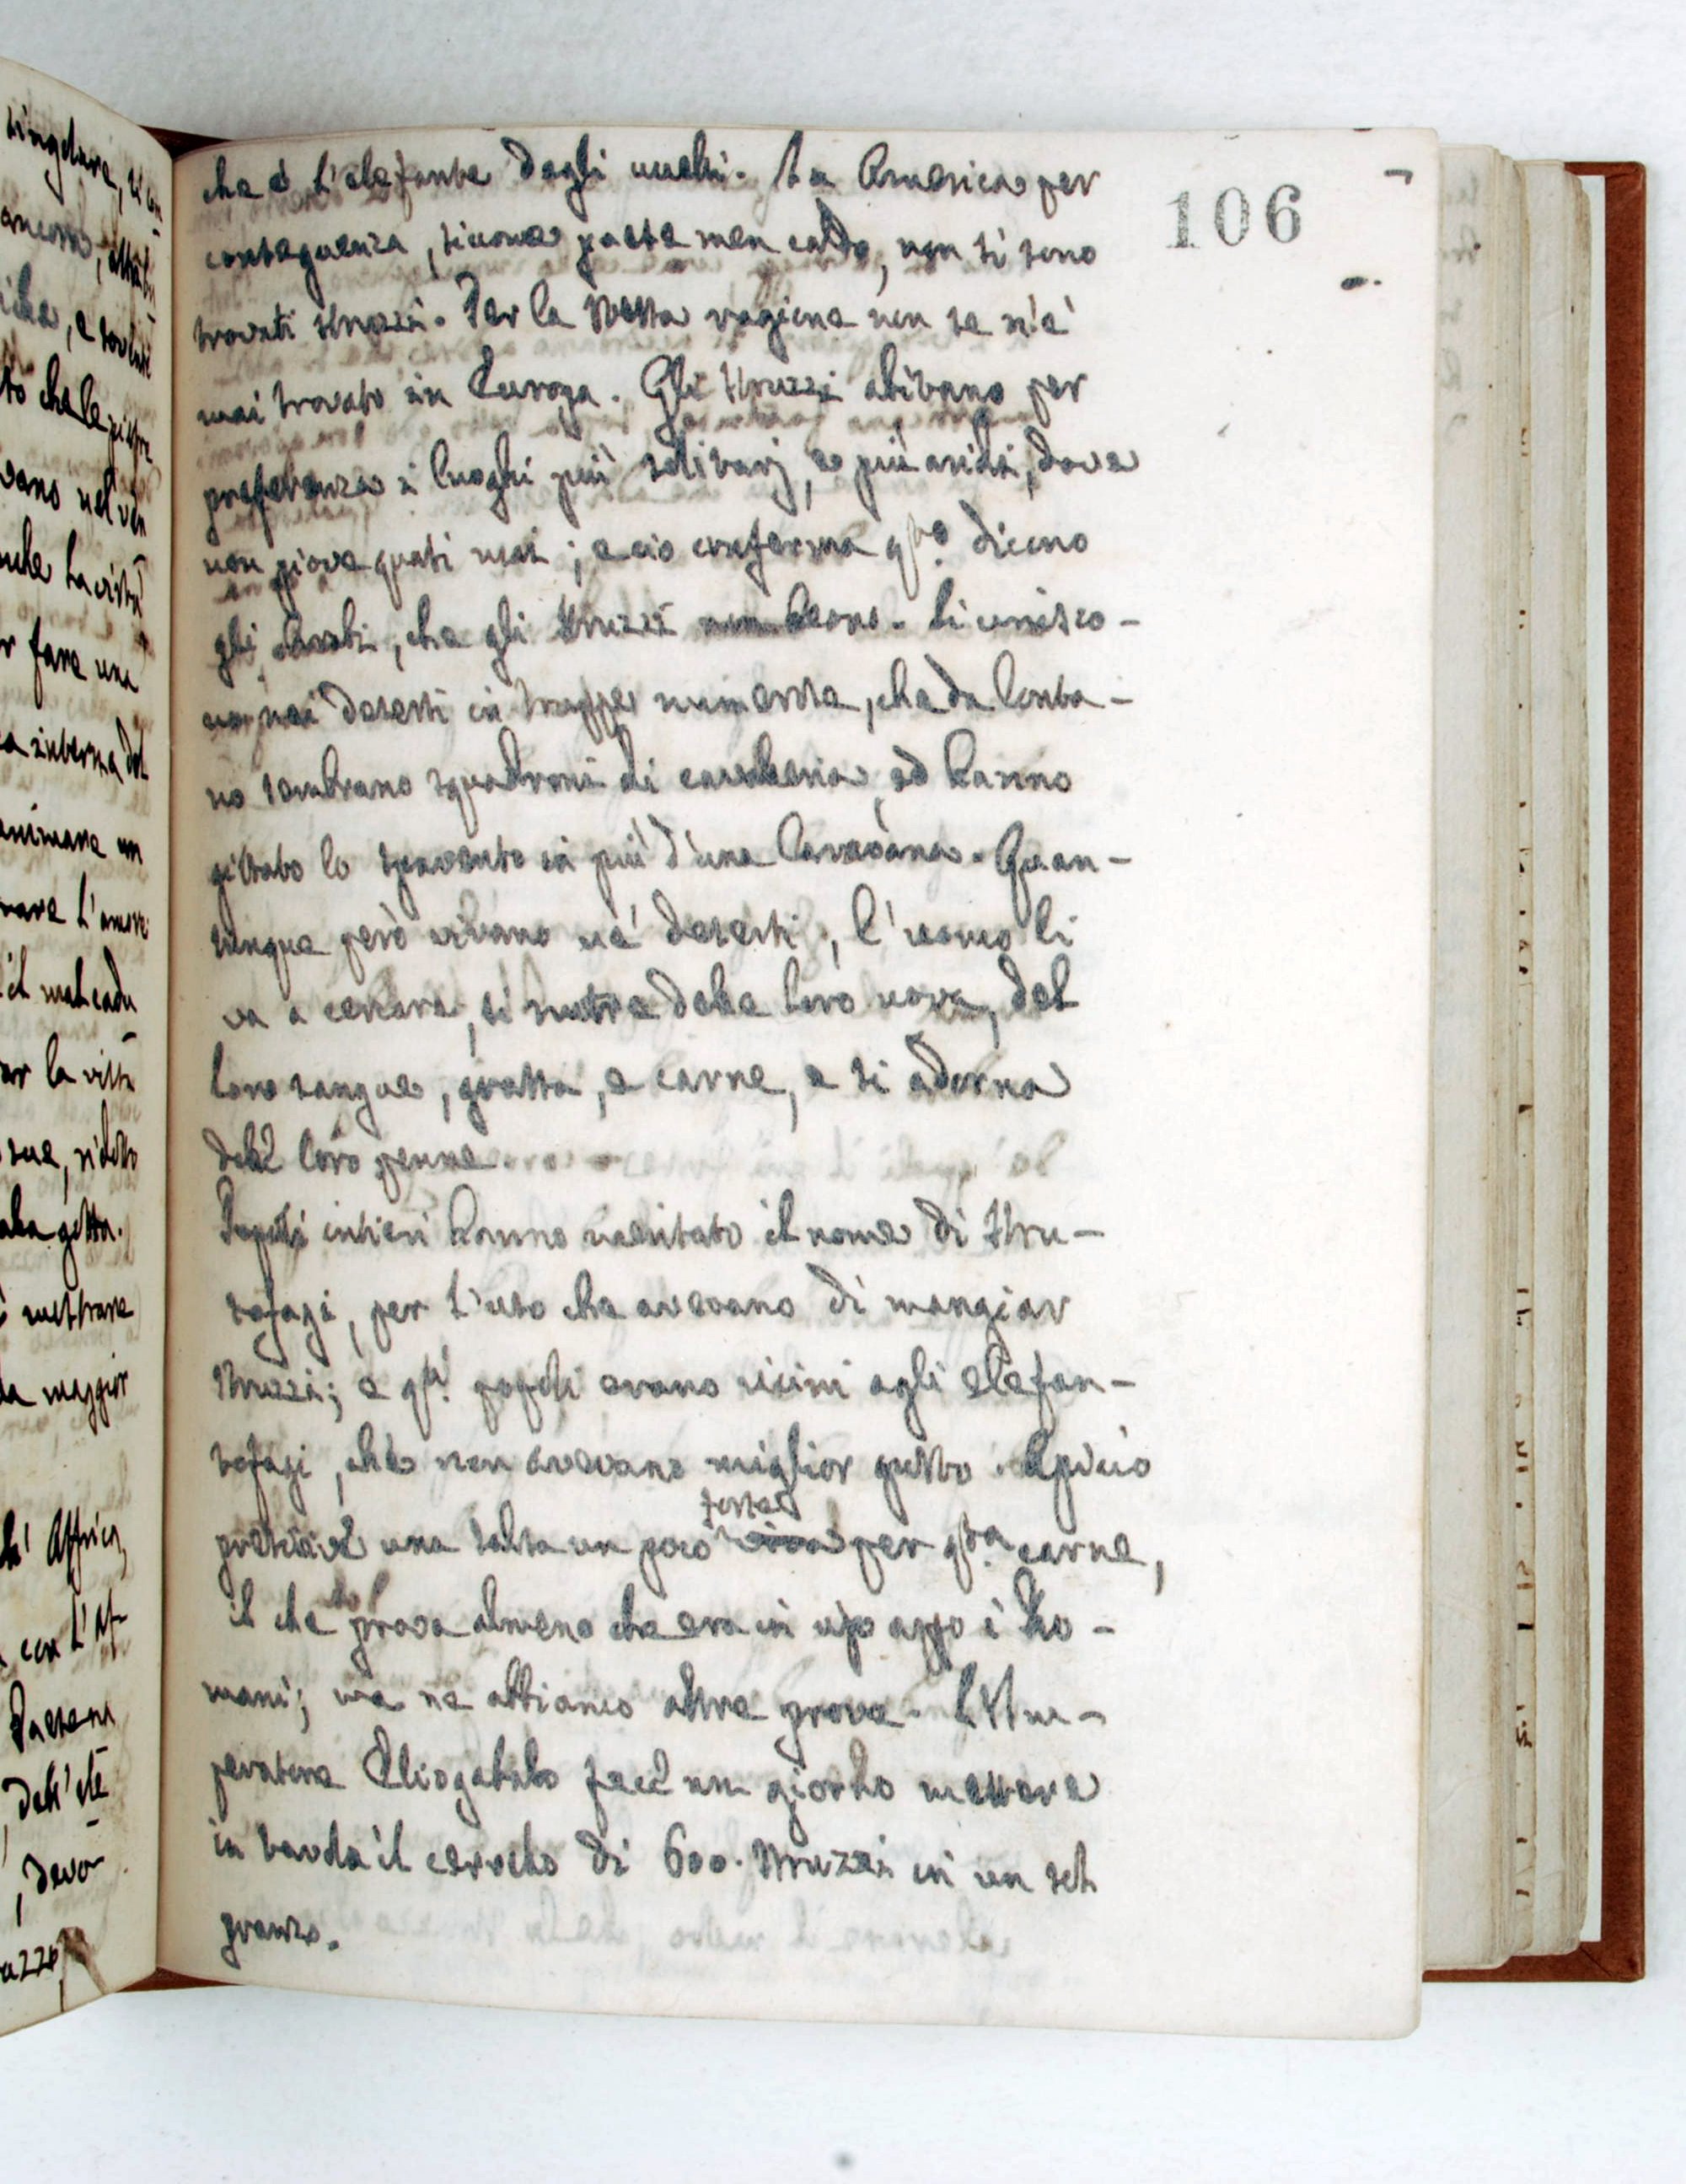 che è l'elefante degli uccelli. In America per
conseguenza, siccome paese men caldo, non si sono
trovati struzzi. Per la stessa ragione non se n'è
mai trovato in Europa. Gli struzzi abitano per
preferenza i luoghi più solitarj, e più aridi, dove
non piove quasi mai; e ciò conferma qto. dicono
gli Arabi, che gli struzzi non beono. Si unisco-
no nei deserti in truppe numerose, che da lonta-
no sembrano squadroni di cavalleria, ed hanno
gittato lo spavento in più d'una Caravana. Quan-
tunque però vivano ne' deserti, l'uomo li
va a cercare, si nutre delle loro uova, del
loro sangue, grasso, e carne, e si adorna
delle loro penne.
Popoli intieri hanno meritato il nome di stru-
zofagi, per l'uso che avevano di mangiar
struzzi; e qti. popoli erano vicini agli elefan-
tofagi, che non avevano miglior gusto. Apicio
prescrive una salsa un poco forte per qta. carne,
il che prova almeno che era in uso appo i Ro-
mani; ma ne abbiamo altre prove. L'Im-
peratore Eliogabalo fece un giorno mettere
in tavola il cervello di 600. struzzi in un sol
pranzo.
106